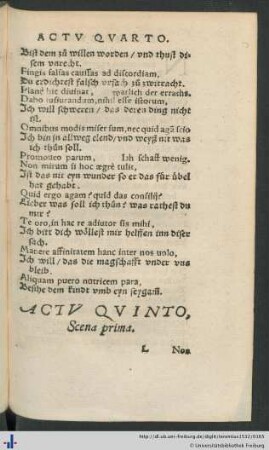 ACTV QVARTO.
Bist dem zů willen worden / vnd thust di
sem vnrecht.
Fingis falsas causas ad discordiam,
Du erdichtest falsch vrsach zů zwitracht.
Planè hic diuinat, warlich der errathts.
Dabo iusiurandum, nihil esse istorum,
Ich will schweren / das deren ding nicht
ist.
Omnibus modis miser sum, nec quid agã scio
Ich bin in allweg elend / vnd weyß nit was
ich thůn soll.
Promoueo parum, Ich schaff wenig.
Non mirum si hoc ægrè tulit,
Ist das nit eyn wunder so er das für übel
hat gehabt.
Quid ergo agam? quid das consilij?
Lieber was soll ich thůn? was rathest du
mir?
Te oro, in hac re adiutor sis mihi,
Ich bitt dich wöllest mir helffen inn diser
sach.
Manere affinitatem hanc inter nos uolo,
Ich will / das die magschafft vnder vns
bleib.
Aliquam puero nutricem para,
Besihe dem kindt vmb eyn seygam̃.
ACTV QVINTO,
Scena prima.
L Nos
http://dl.ub.uni-freiburg.de/diglit/
© Universitätsbibliothek Freiburg